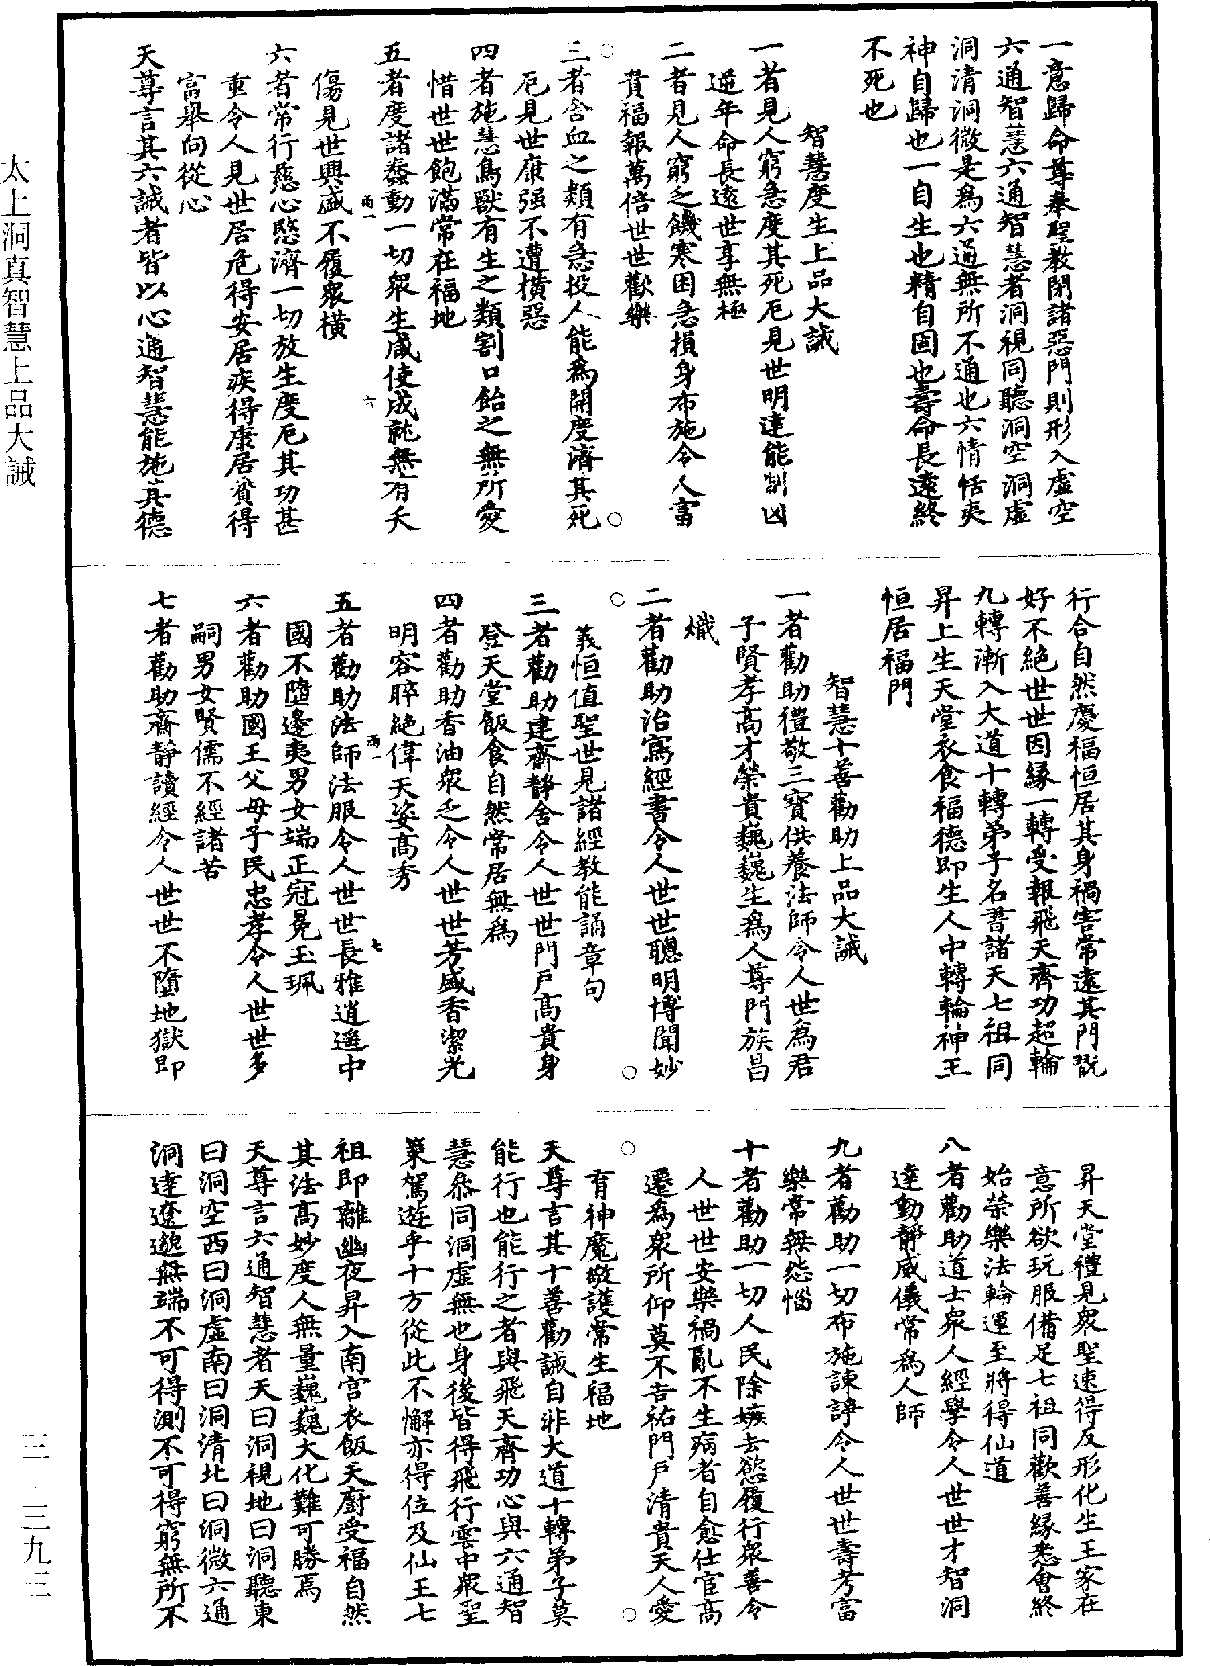 一意歸命尊奉聖教閉諸惡門則形入虛空
六通智慧六通智慧者洞視同聽洞空洞虛
洞清洞微是爲六通無所不通也六情恬夷
神自歸也一自生也精自固也壽命長遠終
不死也
智慧度生上品大誡
一者見人窮急度其死厄見世明達能制凶
逆年命長遠世享無極
二者見人窮乏饑寒困急損身布施令人富
貴福報萬倍世世歡樂
三者含血之類有急投人能爲開度濟其死
厄見世康强不遭橫惡
四者施慧鳥獸有生之類割口飴之無所愛
惜世世飽滿常在福地
五者度諸蠢動一切衆生咸使成就無有夭
傷見世興盛不履衆橫
六者常行慈心愍濟一切放生度厄其功甚
重令人見世居危得安居疾得康居貧得
富舉向從心
天尊言其六誡者皆以心通智慧能施其德
行合自然慶福恒居其身禍害常遠其門翫
好不絕世世因緣一轉受報飛天齊功超輪
九轉漸入大道十轉弟子名書諸天七祖同
昇上生天堂衣食福德即生人中轉輪神王
恒居福門
智慧十善勸助上品大誡
一者勸助禮敬三寶供養法師令人世爲君
子賢孝高才榮貴巍巍生爲人尊門族昌
熾
二者勸助治寫經書令人世世聰明博聞妙
義恒值聖世見諸經教能誦章句
三者勸助建齋靜舍令人世世門戶高貴身
登天堂飯食自然常居無爲
四者勸助香油衆乏令人世世芳盛香潔光
明容睟絕偉天姿高秀
五者勸助法師法服令人世世長雅逍遙中
國不墮邊夷男女端正冠冕玉珮
六者勸助國王父母子民忠孝令人世世多
嗣男女賢儒不經諸苦
七者勸助齋靜讀經令人世世不墮地獄即
昇天堂禮見衆聖速得反形化生王家在
意所欲玩服備足七祖同歡善緣悉會終
始榮樂法輪運至將得仙道
八者勸助道士衆人經學令人世世才智洞
達動靜威儀常爲人師
九者勸助一切布施諫諍令人世世壽考富
樂常無怨惱
十者勸助一切人民除嫉去慾履行衆善令
人世世安樂禍亂不生病者自愈仕宦高
遷爲衆所仰莫不吉祐門戶清貴天人愛
育神魔敬護常生福地
天尊言其十善勸誡自非大道十轉弟子莫
能行也能行之者與飛天齊功心與六通智
慧叅同洞虛無也身後皆得飛行雲中衆聖
策駕遊乎十方從此不懈亦得位及仙王七
祖即離幽夜昇入南宮衣飯天廚受福自然
其法高妙度人無量巍巍大化難可勝焉
天尊言六通智慧者天曰洞視地曰洞聽東
曰洞空西曰洞虛南曰洞清北曰洞微六通
洞達遼邈無端不可得測不可得窮無所不
太上洞真智慧上品大誡
三 三九三